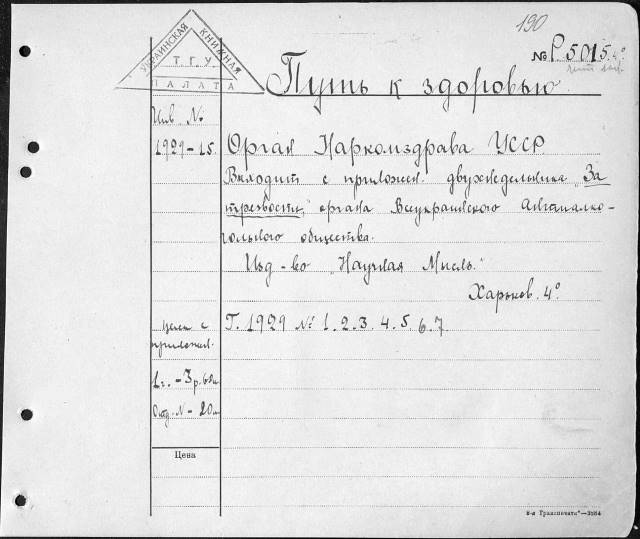 190
УКРАИНСКАЯ КНИЖНАЯ
Т.Г.У.
ПАЛАТА
№ Р5015
Путь к здоровью
Инв №
1929-15.
Орган Наркомздрава УССР.
Выходит с приложен. двухнедельника "За
трезвость," органа Всеукраинского Антиалко-
гольного общества.
Изд-во "Научная Мысль."
Харьков. 4°.
Цена с
приложен.
Г. 1929 № 1. 2. 3. 4. 5. 6. 7.
1 г. - 3 р. 60 к
Отд. N - 20 к
Цена
8-я Транспечати"—3584